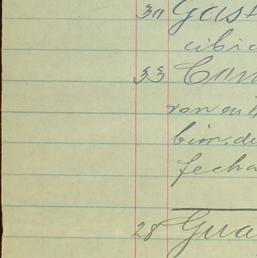 30 Gast
cibi
33 Con
ron en
bim. de
fecha
28 Gua